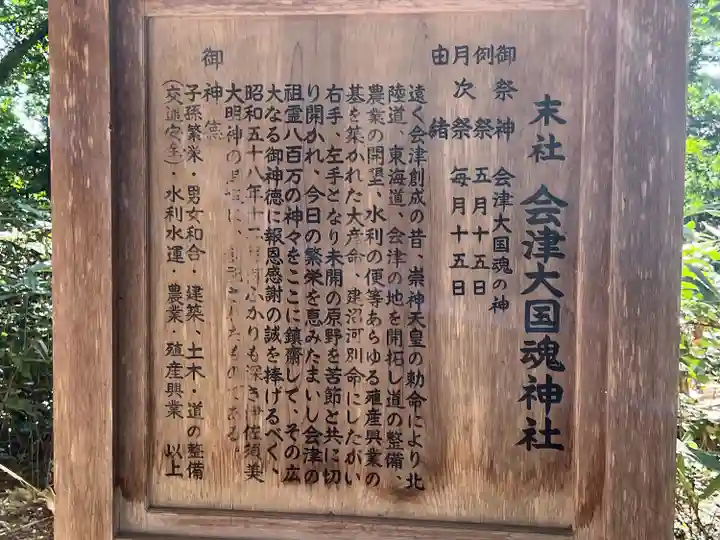 末社 会津大国魂神社
御祭神 会津大国魂の神
例祭 五月十五日
月次祭 毎月十五日
由緒
遠く会津創成の昔、崇神天皇の勅命により北
陸道、東海道、会津の地を開拓し道の整備、
農業の開墾、水利の便等あらゆる殖産興業の
基を築かれた大彦命、建沼河別命にしたがい
右手、左手となり未開の原野を苦節と共に切
り開かれ、今日の繁栄を恵みたまいし会津の
祖霊八百万の神々をここに鎮齋して、その広
大なる御神徳に報恩感謝の誠を捧げるべく、
昭和五十八年十 ふかりも深き伊佐須美
大明神の したものである。
御神徳
子孫繁栄・男女和合・建築、土木・道の整備
(交通安全)・水利水運・農業、殖産興業 以上